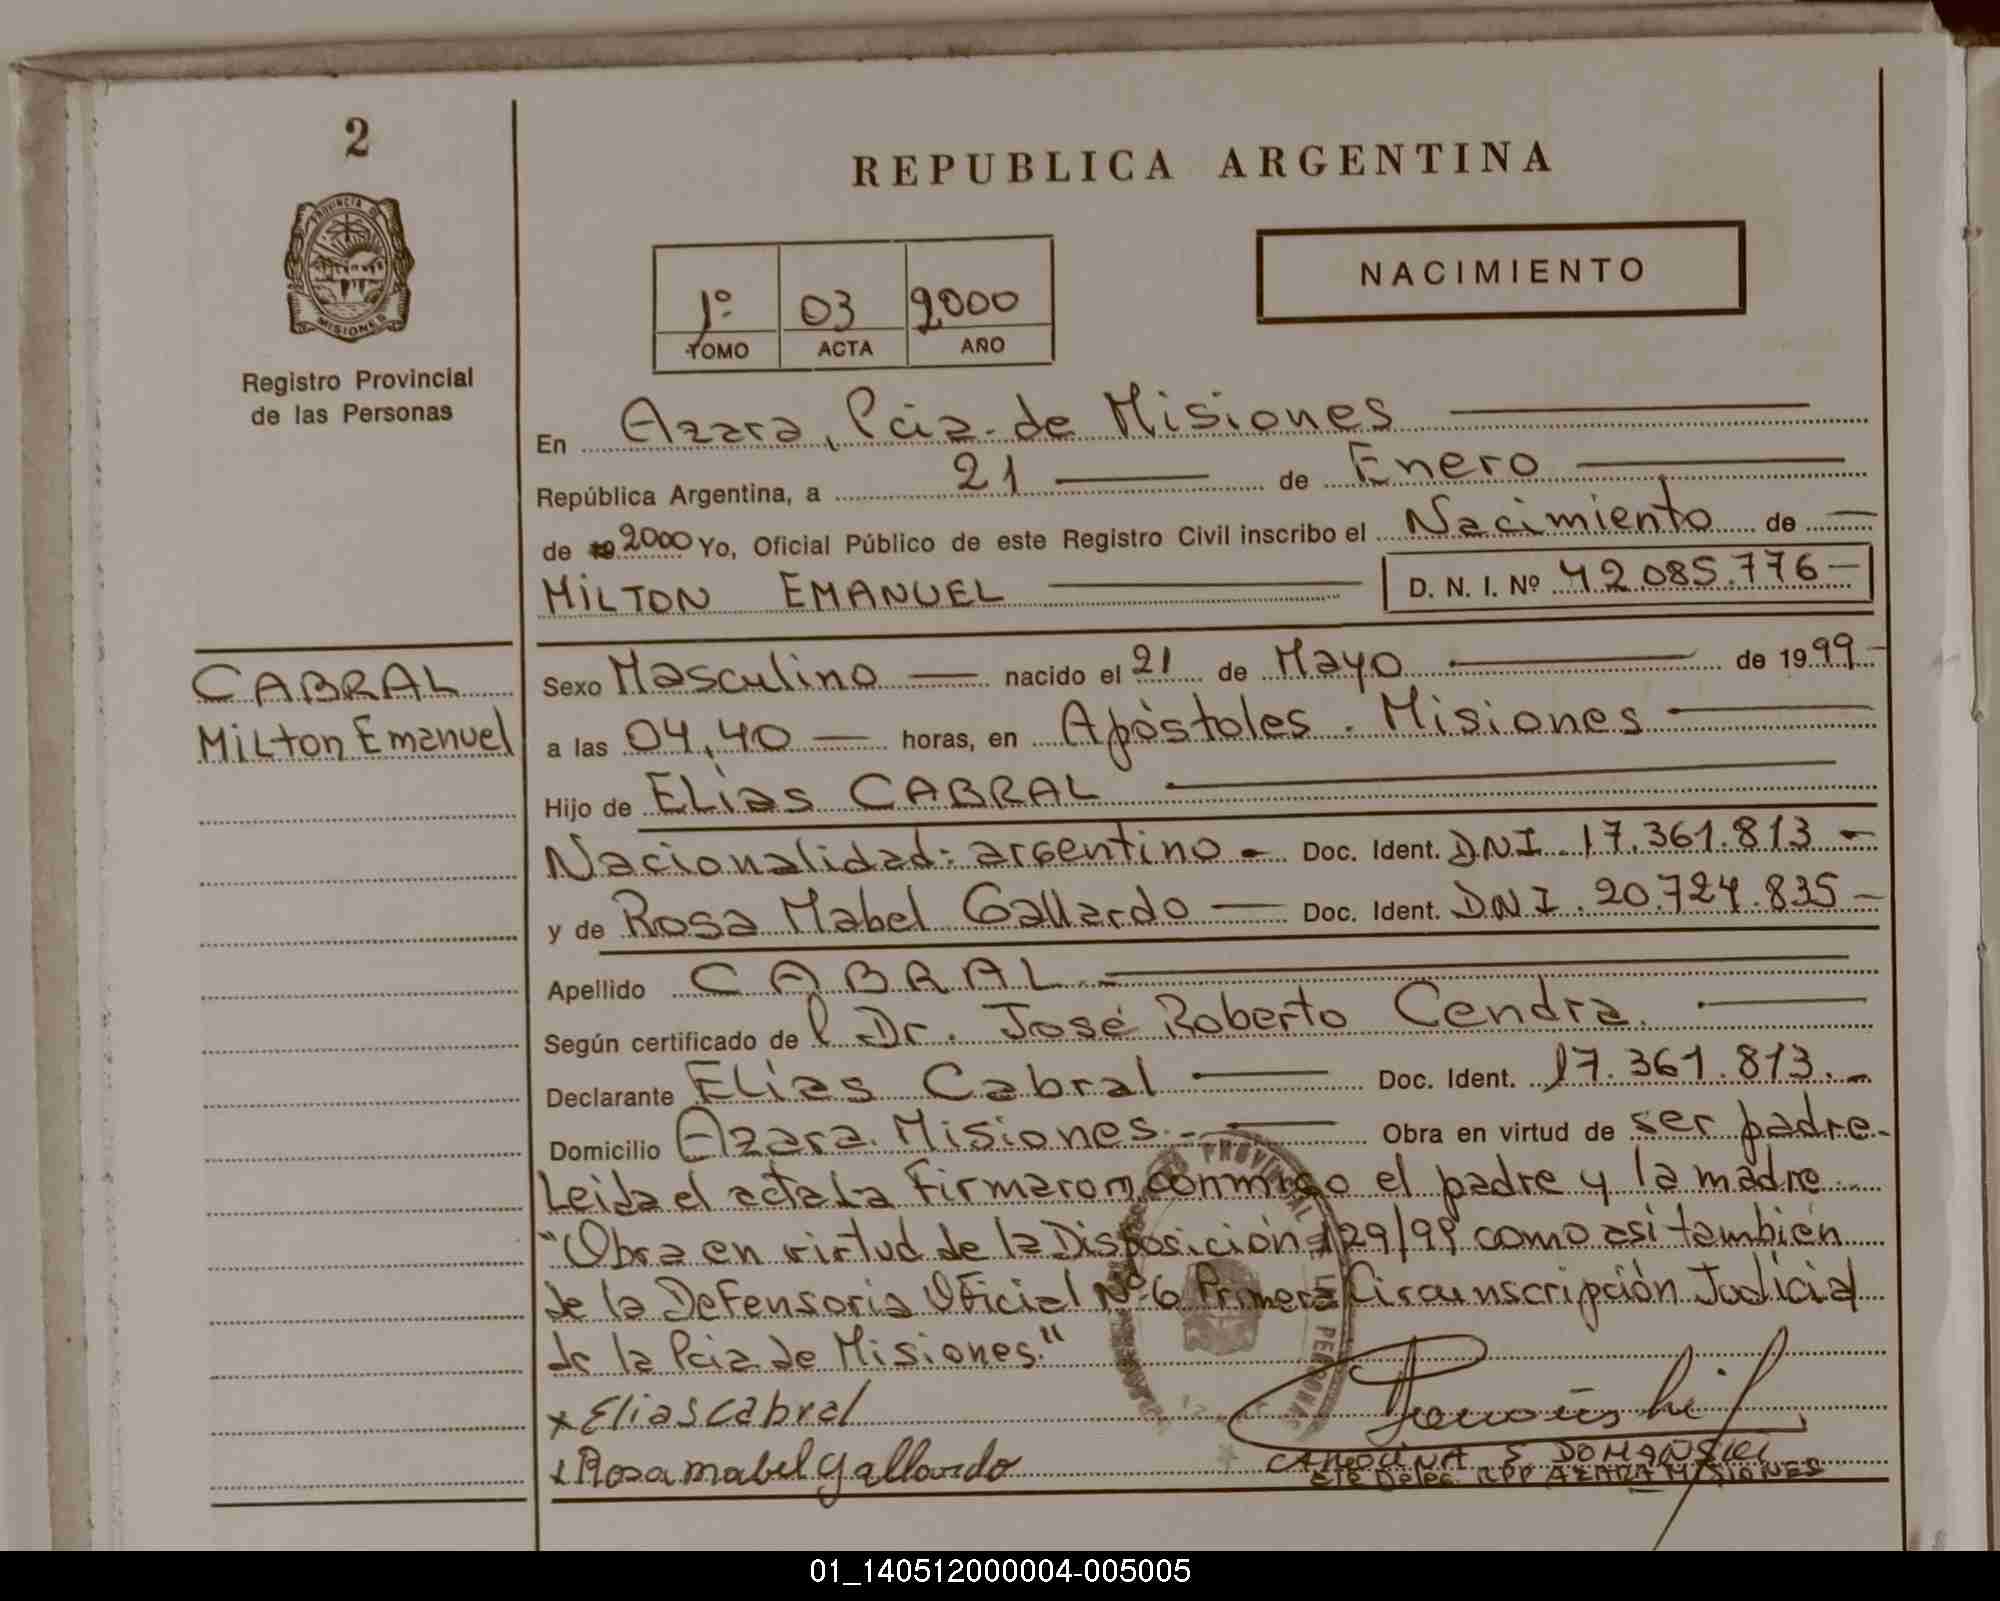 2
REPUBLICA ARGENTINA
PROVINCIA DE
MISIONES
Registro Provincial
de las Personas
NACIMIENTO
1º 03 2000
TOMO ACTA AÑO
En Azara, Pcia. de Misiones
República Argentina, a 21 de Enero
de 19 2000 Yo, Oficial Público de este Registro Civil inscribo el Nacimiento de
MILTON EMANUEL D. N. I. Nº 42.085.776
CABRAL
Milton Emanuel
Sexo Masculino nacido el 21 de Mayo de 1999
a las 04,40 horas, en Apóstoles. Misiones
Hijo de Elias CABRAL
Nacionalidad: argentino Doc. Ident. DNI. 17.361.813
y de Rosa Mabel Gallardo Doc. Ident. DNI. 20.724.835
Apellido CABRAL
Según certificado del Dr. José Roberto Cendra.
Declarante Elias Cabral Doc. Ident. 17.361.813.
Domicilio Azara. Misiones. Obra en virtud de ser padre
Leida el acta la Firmaron conmigo el padre y la madre
"Obra en virtud de la Disposición 129/99 como asi también
de la Defensoria Oficial Nº 6 Primera Circunscripción Judicial
de la Pcia de Misiones."
x Elias cabral
x Rosa mabel gallardo
S. DOMAÑSKI
RPP AZARA MISIONES
01_140512000004-005005